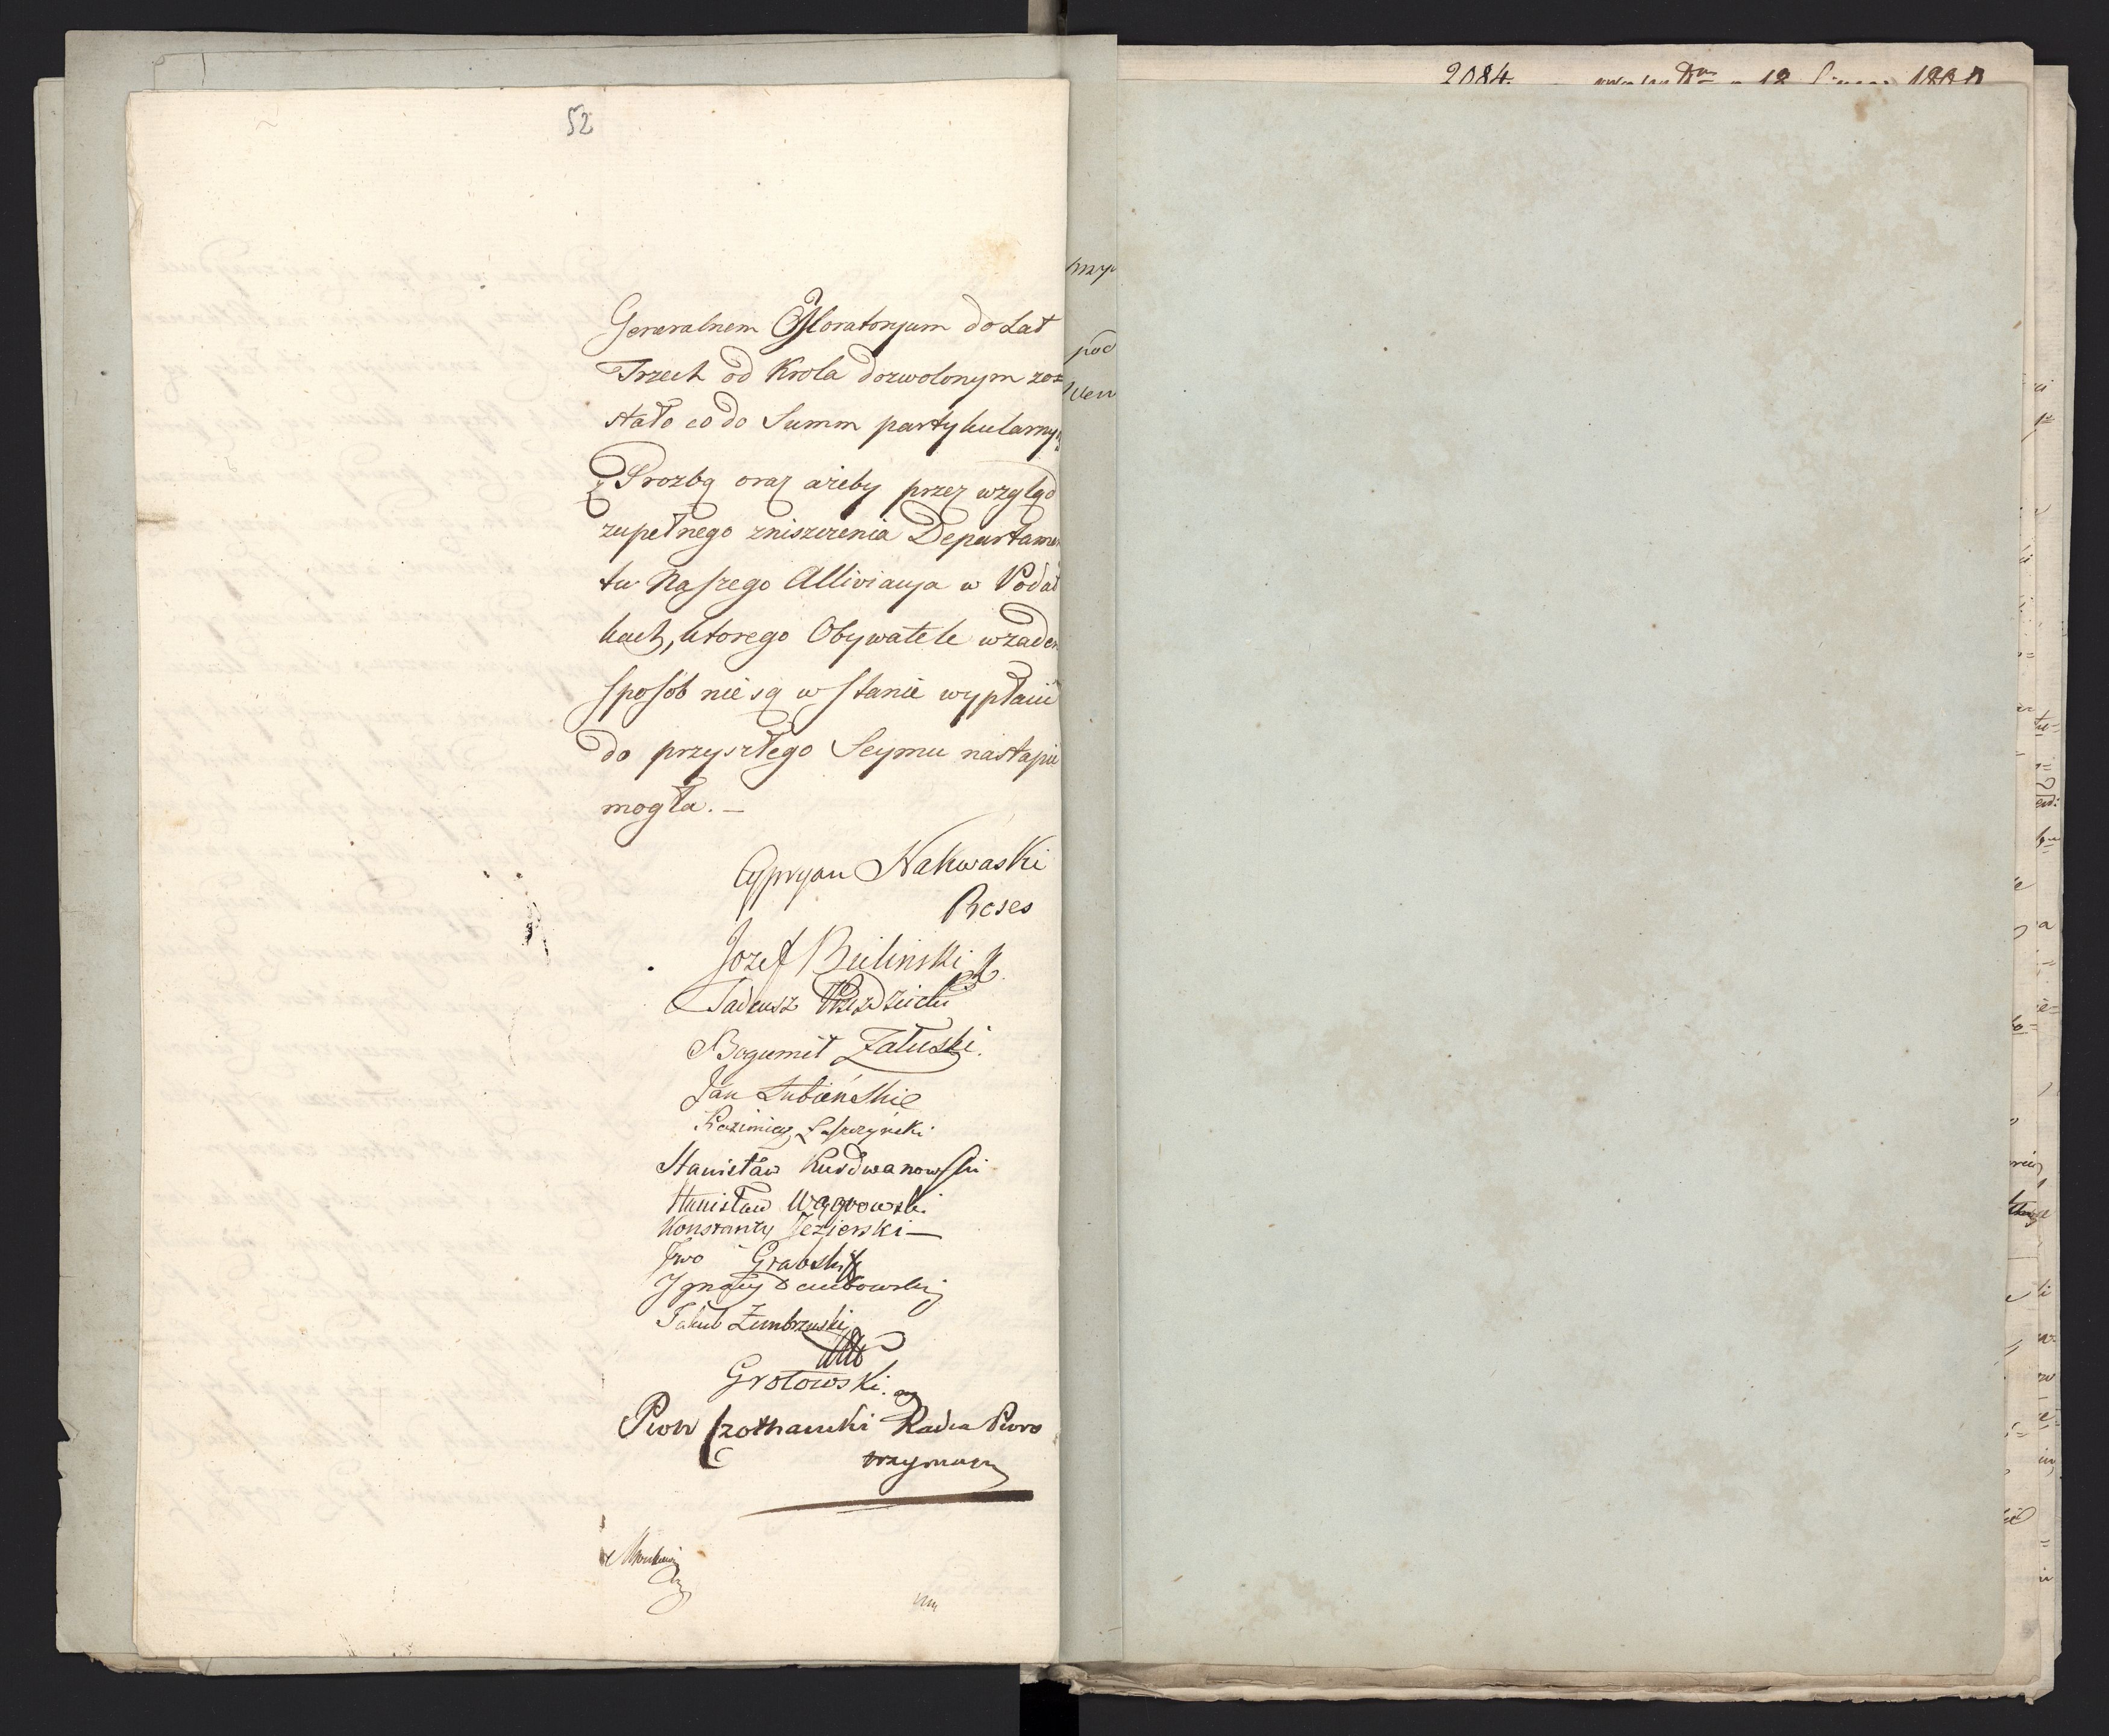 52
Generalnem Moratoryum do Lat
Trzech od Krola dozwolonym zo=
stało co do Summ partykularny
z Prozbą oraz ażeby przez wzgląd
zupełnego zniszczenia Departamen
tu Naszego Alliviacya w Podat
kach, ktorego Obywatele wżaden
sposób nie są w stanie wypłacić
do przyszłego Seymu nastąpić
mogła. —
Cypryan Nakwaski
Prezes
Jozef Bielinski
Tadeusz
Bogumił Załuski.
Jan Łubieński
Kazimierz
Stanisław Kurdwanowski
Stanisław Wągrowski
Konstanty Jezierski —
Iwo Grabski
Ignacy Dembowski
Jakub Zembrzuski
Grotowski.
Piotr Szotharski Radca Pioro
trzymaiący
przy
pod
2084.